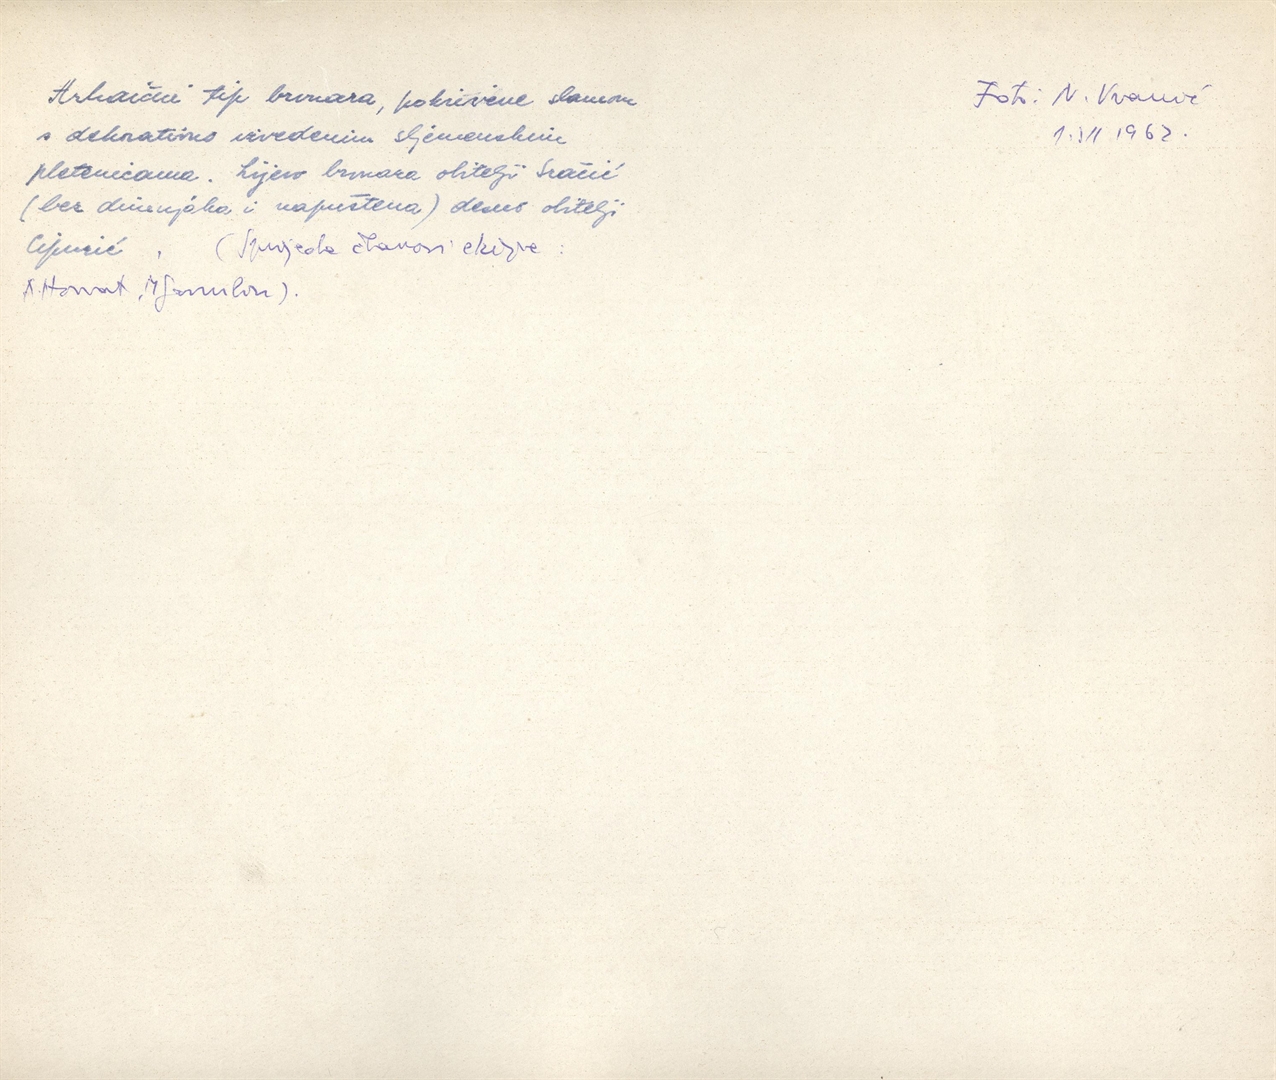 Arhaični tip brvnara, pokrivene slamom
s dekorativno izvedenim sljemenskim
pletenicama. Lijevo brvnara obitelji Sračić
(bez dimnjaka i napuštena) desno obitelji
(Sprijeda članovi ekipe :
A. Horvat,
Foto: N. Vranić
1962.